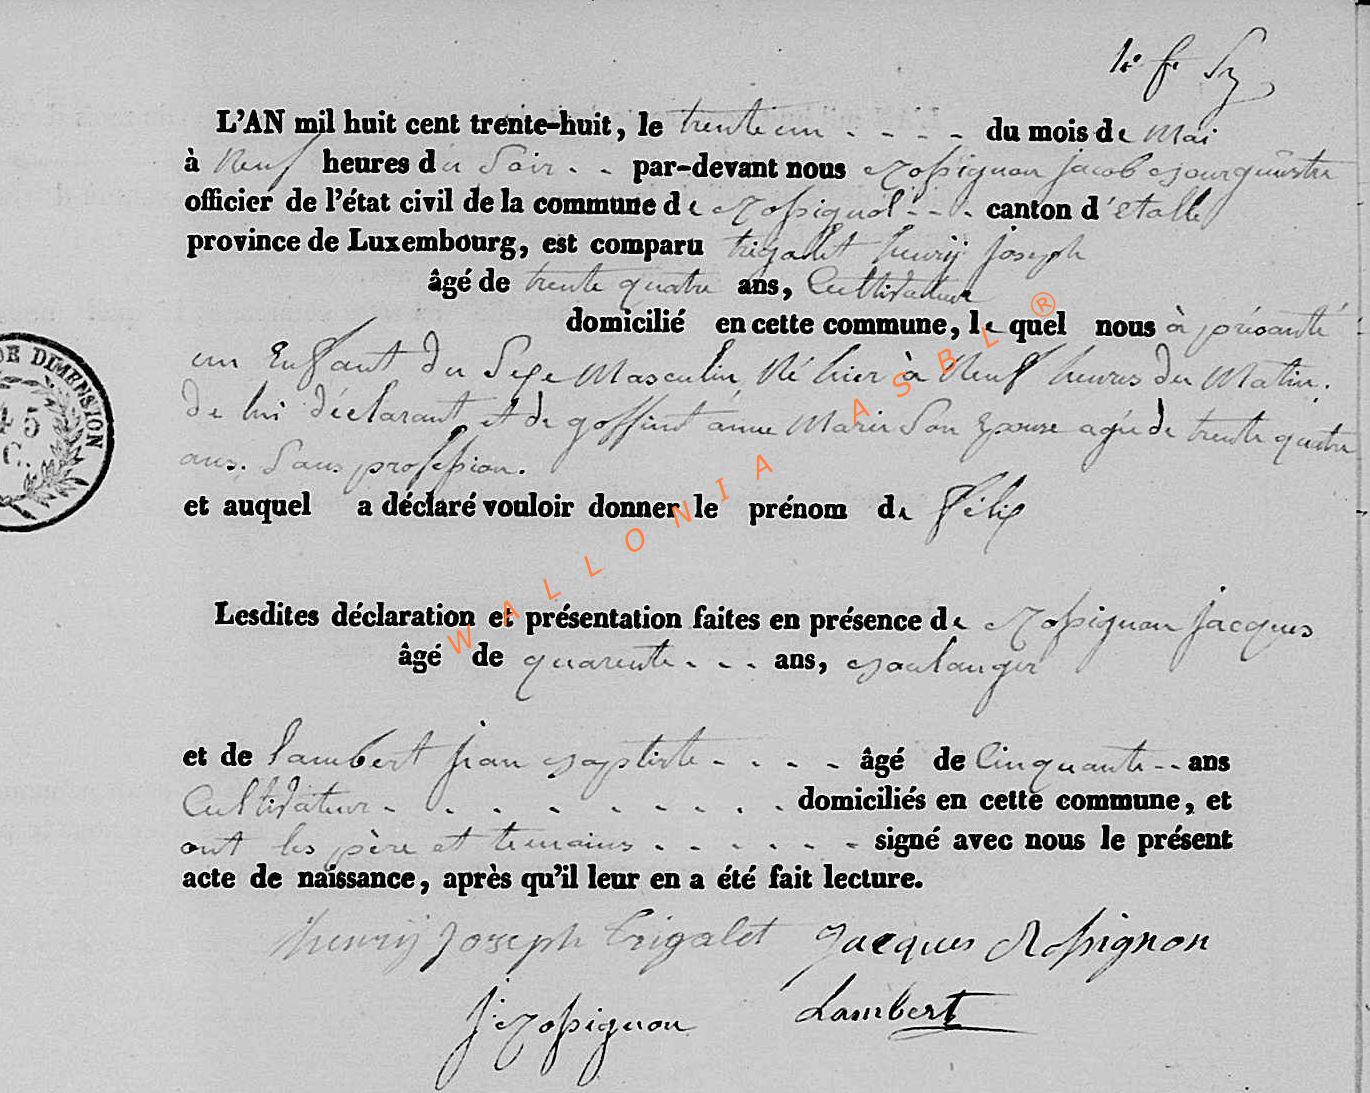 L'AN mil huit cent trente-huit, le trente un - - - - du mois de Mai
à Neuf heures du Soir - - par-devant nous Rossignon Jacob Bourguimstre
officier de l'état civil de la commune de Rossignol - - - canton d'étalle
province de Luxembourg, est comparu trigalet henrij joseph
âgé de trente quatre ans, Cultivateur
domicilié en cette commune, lequel nous à présanté
un Enfant du Sexe Masculin, Né hier à Neuf heures du Matin.
De lui déclarant et de goffint anne Marie Son Epouse agée de trente quatre
ans. Sans profession.
et auquel a déclaré vouloir donner le prénom de félix
DE DIMENSION
45
C.
Lesdites déclaration et présentation faites en présence de Rossignon Jacques
âgé de quarente - - - ans, Boulanger
et de Lambert jean Baptiste - - - - âgé de Cinquante - - ans
Cultivateur - - - - - - - - domiciliés en cette commune, et
ont les père et temoins - - - - - - signé avec nous le présent
acte de naissance, après qu'il leur en a été fait lecture.
henrij Joseph Trigalet Jacques Rossignon
J. Rossignon Lambert
WALLONIA ASBL ®